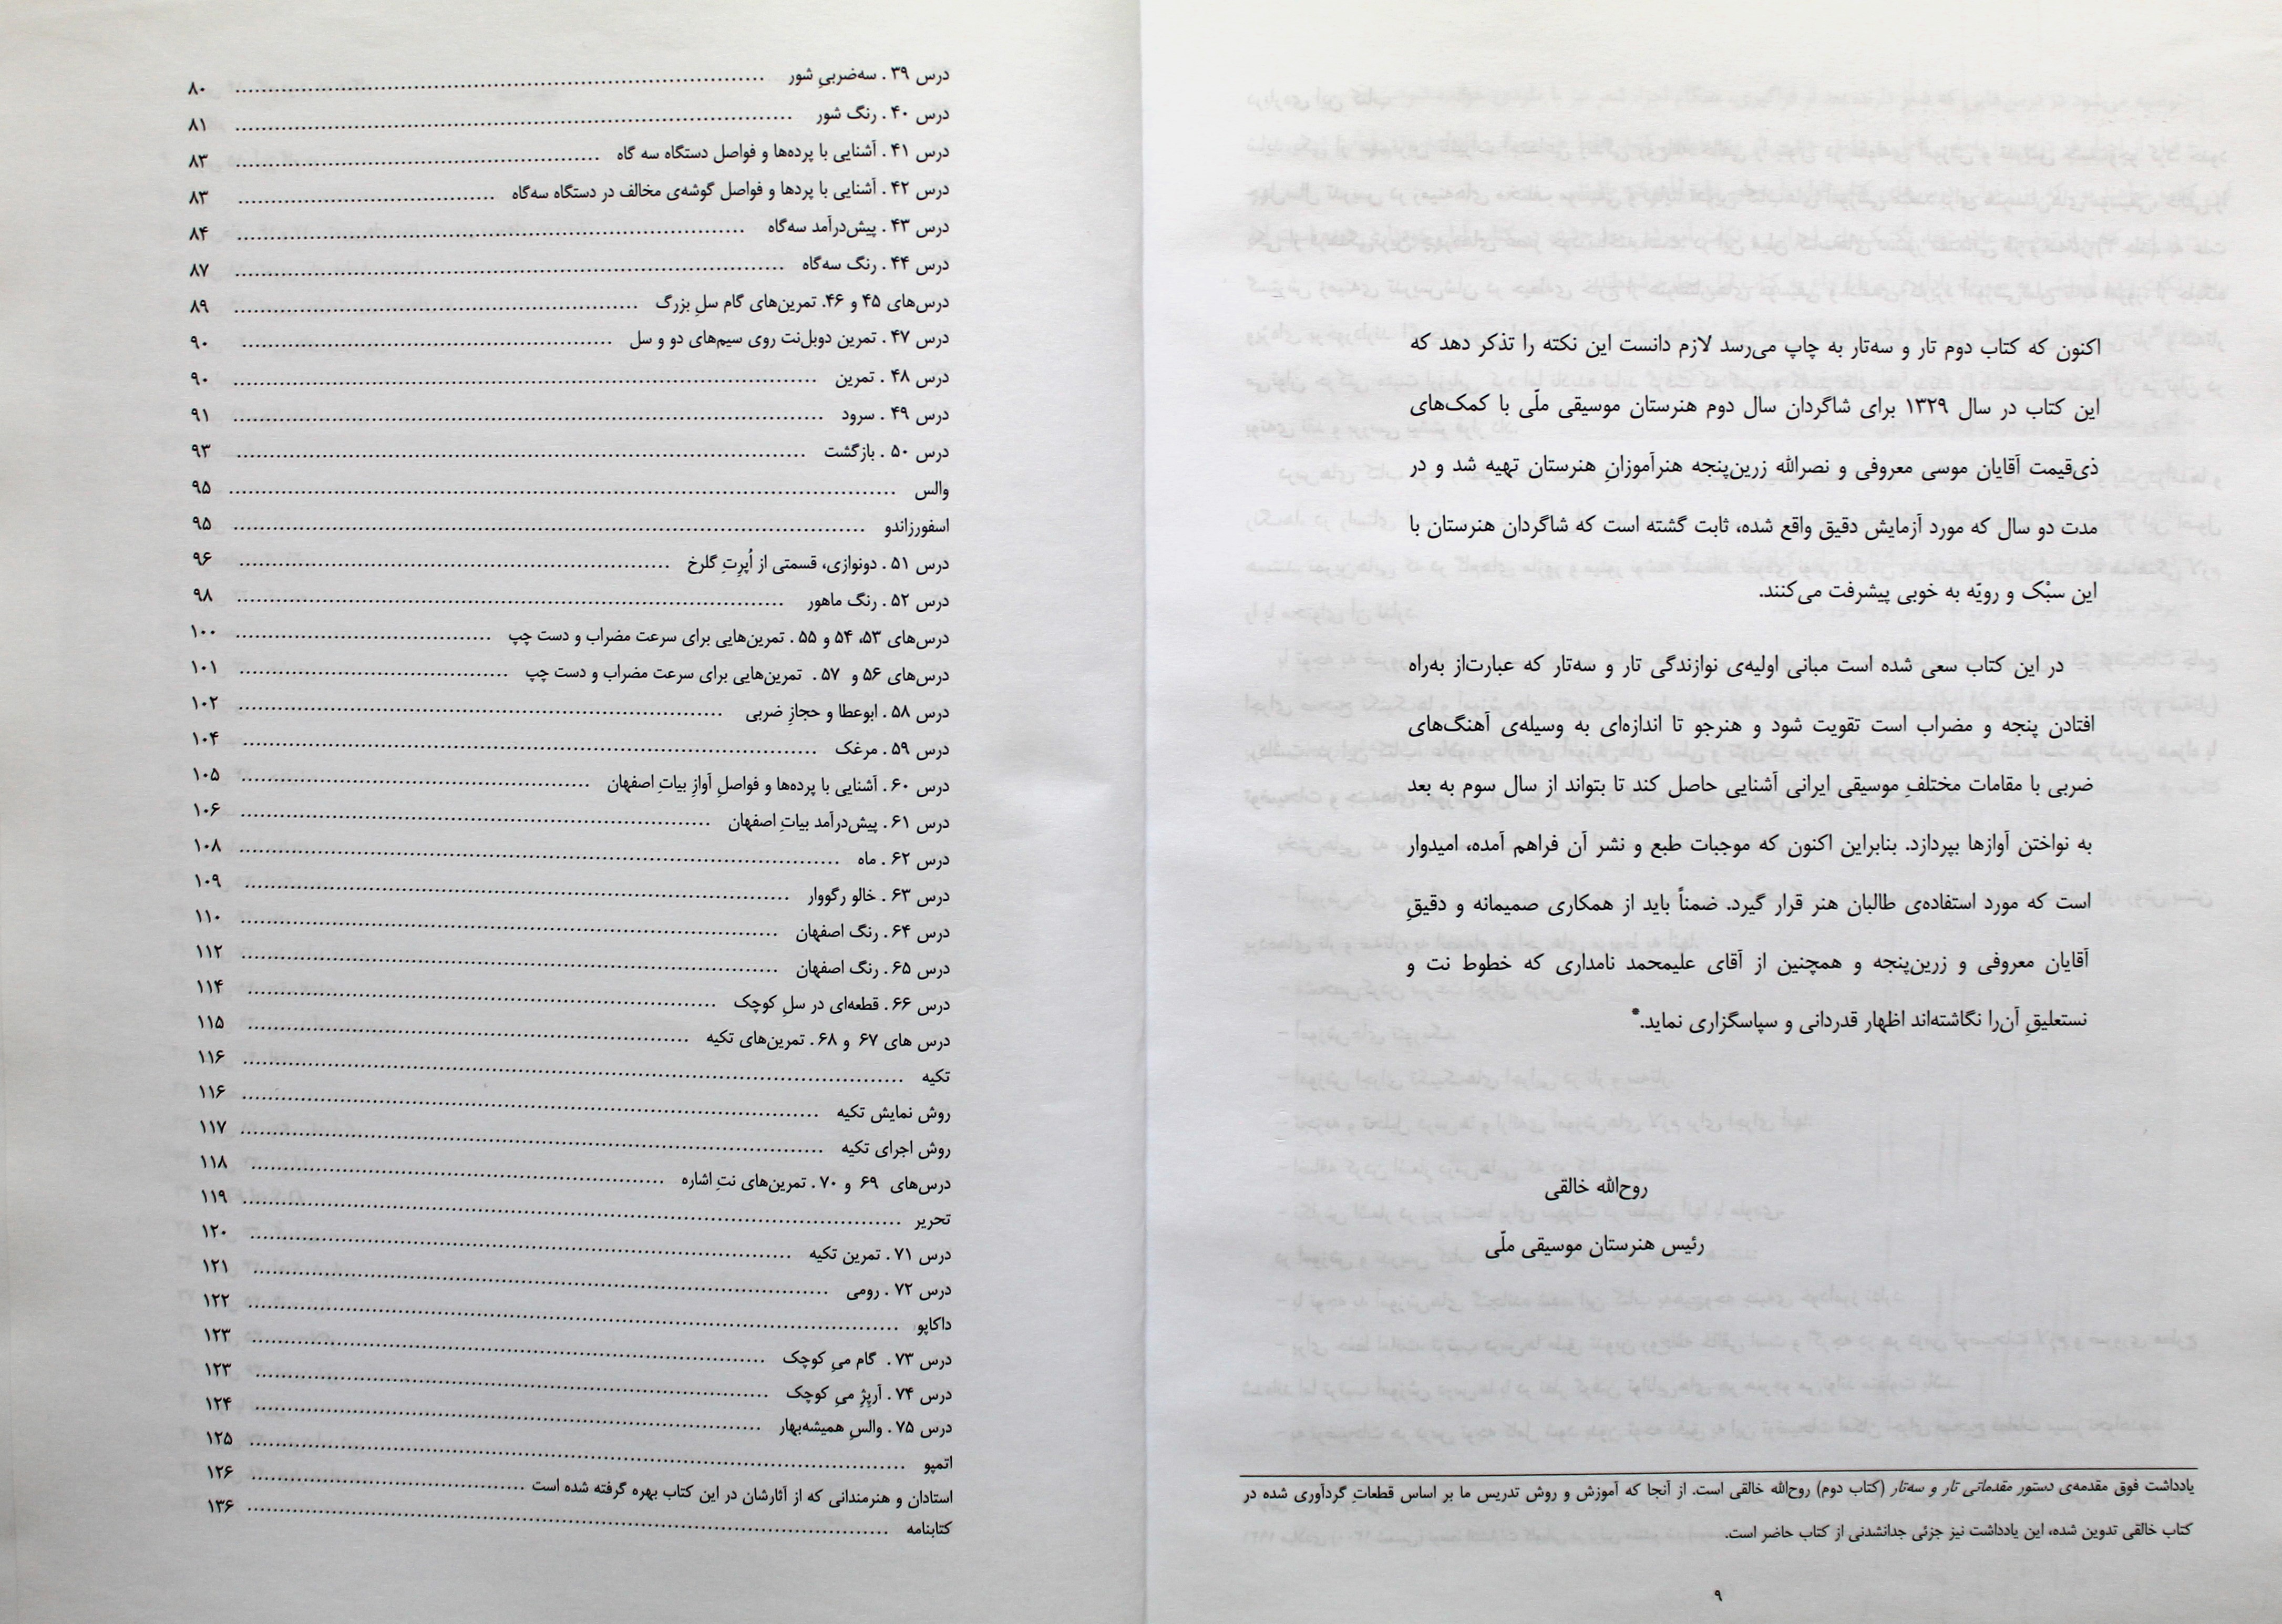 اکنون که کتاب دوم تار و سه‌تار به چاپ می‌رسد لازم دانست این نکته را تذکر دهد که
این کتاب در سال ۱۳۲۹ برای شاگردان سال دوم هنرستان موسیقی ملّی با کمک‌های
ذی‌قیمت آقایان موسی معروفی و نصرالله زرین‌پنجه هنرآموزانِ هنرستان تهیه شد و در
مدت دو سال که مورد آزمایش دقیق واقع شده، ثابت گشته است که شاگردان هنرستان با
این سبْک و رویّه به خوبی پیشرفت می‌کنند.
در این کتاب سعی شده است مبانی اولیه‌ی نوازندگی تار و سه‌تار که عبارت‌از به‌راه
افتادن پنجه و مضراب است تقویت شود و هنرجو تا اندازه‌ای به وسیله‌ی آهنگ‌های
ضربی با مقامات مختلفِ موسیقی ایرانی آشنایی حاصل کند تا بتواند از سال سوم به بعد
به نواختن آوازها بپردازد. بنابراین اکنون که موجبات طبع و نشر آن فراهم آمده، امیدوار
است که مورد استفاده‌ی طالبان هنر قرار گیرد. ضمناً باید از همکاری صمیمانه و دقیقِ
آقایان معروفی و زرین‌پنجه و همچنین از آقای علیمحمد نامداری که خطوط نت و
نستعلیقِ آن‌را نگاشته‌اند اظهار قدردانی و سپاسگزاری نماید.*
روح‌الله خالقی
رئیس هنرستان موسیقی ملّی
یادداشت فوق مقدمه‌ی دستور مقدماتی تار و سه‌تار (کتاب دوم) روح‌الله خالقی است. از آنجا که آموزش و روش تدریس ما بر اساس قطعاتِ گردآوری شده در
کتاب خالقی تدوین شده، این یادداشت نیز جزئی جدانشدنی از کتاب حاضر است.
۹
درس ۳۹ . سه‌ضربیِ شور ........ ۸۰
درس ۴۰ . رنگ شور ........ ۸۱
درس ۴۱ . آشنایی با پرده‌ها و فواصل دستگاه سه گاه ........ ۸۳
درس ۴۲ . آشنایی با پردها و فواصل گوشه‌ی مخالف در دستگاه سه‌گاه ........ ۸۳
درس ۴۳ . پیش‌درآمد سه‌گاه ........ ۸۴
درس ۴۴ . رنگ سه‌گاه ........ ۸۷
درس‌های ۴۵ و ۴۶. تمرین‌های گام سلِ بزرگ ........ ۸۹
درس ۴۷ . تمرین دوبل‌نت روی سیم‌های دو و سل ........ ۹۰
درس ۴۸ . تمرین ........ ۹۰
درس ۴۹ . سرود ........ ۹۱
درس ۵۰ . بازگشت ........ ۹۳
والس ........ ۹۵
اسفورزاندو ........ ۹۵
درس ۵۱ . دونوازی، قسمتی از اُپرِتِ گلرخ ........ ۹۶
درس ۵۲ . رنگ ماهور ........ ۹۸
درس‌های ۵۳، ۵۴ و ۵۵ . تمرین‌هایی برای سرعت مضراب و دست چپ ........ ۱۰۰
درس‌های ۵۶ و ۵۷ . تمرین‌هایی برای سرعت مضراب و دست چپ ........ ۱۰۱
درس ۵۸ . ابوعطا و حجازِ ضربی ........ ۱۰۲
درس ۵۹ . مرغک ........ ۱۰۴
درس ۶۰ . آشنایی با پرده‌ها و فواصلِ آوازِ بیاتِ اصفهان ........ ۱۰۵
درس ۶۱ . پیش‌درآمد بیاتِ اصفهان ........ ۱۰۶
درس ۶۲ . ماه ........ ۱۰۸
درس ۶۳ . خالو رگووار ........ ۱۰۹
درس ۶۴ . رنگ اصفهان ........ ۱۱۰
درس ۶۵ . رنگ اصفهان ........ ۱۱۲
درس ۶۶ . قطعه‌ای در سلِ کوچک ........ ۱۱۴
درس های ۶۷ و ۶۸ . تمرین‌های تکیه ........ ۱۱۵
تکیه ........ ۱۱۶
روش نمایش تکیه ........ ۱۱۶
روش اجرای تکیه ........ ۱۱۷
درس‌های ۶۹ و ۷۰ . تمرین‌های نتِ اشاره ........ ۱۱۸
تحریر ........ ۱۱۹
درس ۷۱ . تمرین تکیه ........ ۱۲۰
درس ۷۲ . رومی ........ ۱۲۱
داکاپو ........ ۱۲۲
درس ۷۳ . گام میِ کوچک ........ ۱۲۳
درس ۷۴ . آرپِژِ میِ کوچک ........ ۱۲۳
درس ۷۵ . والسِ همیشه‌بهار ........ ۱۲۴
اتمپو ........ ۱۲۵
استادان و هنرمندانی که از آثارشان در این کتاب بهره گرفته شده است ........ ۱۲۶
کتابنامه ........ ۱۳۶